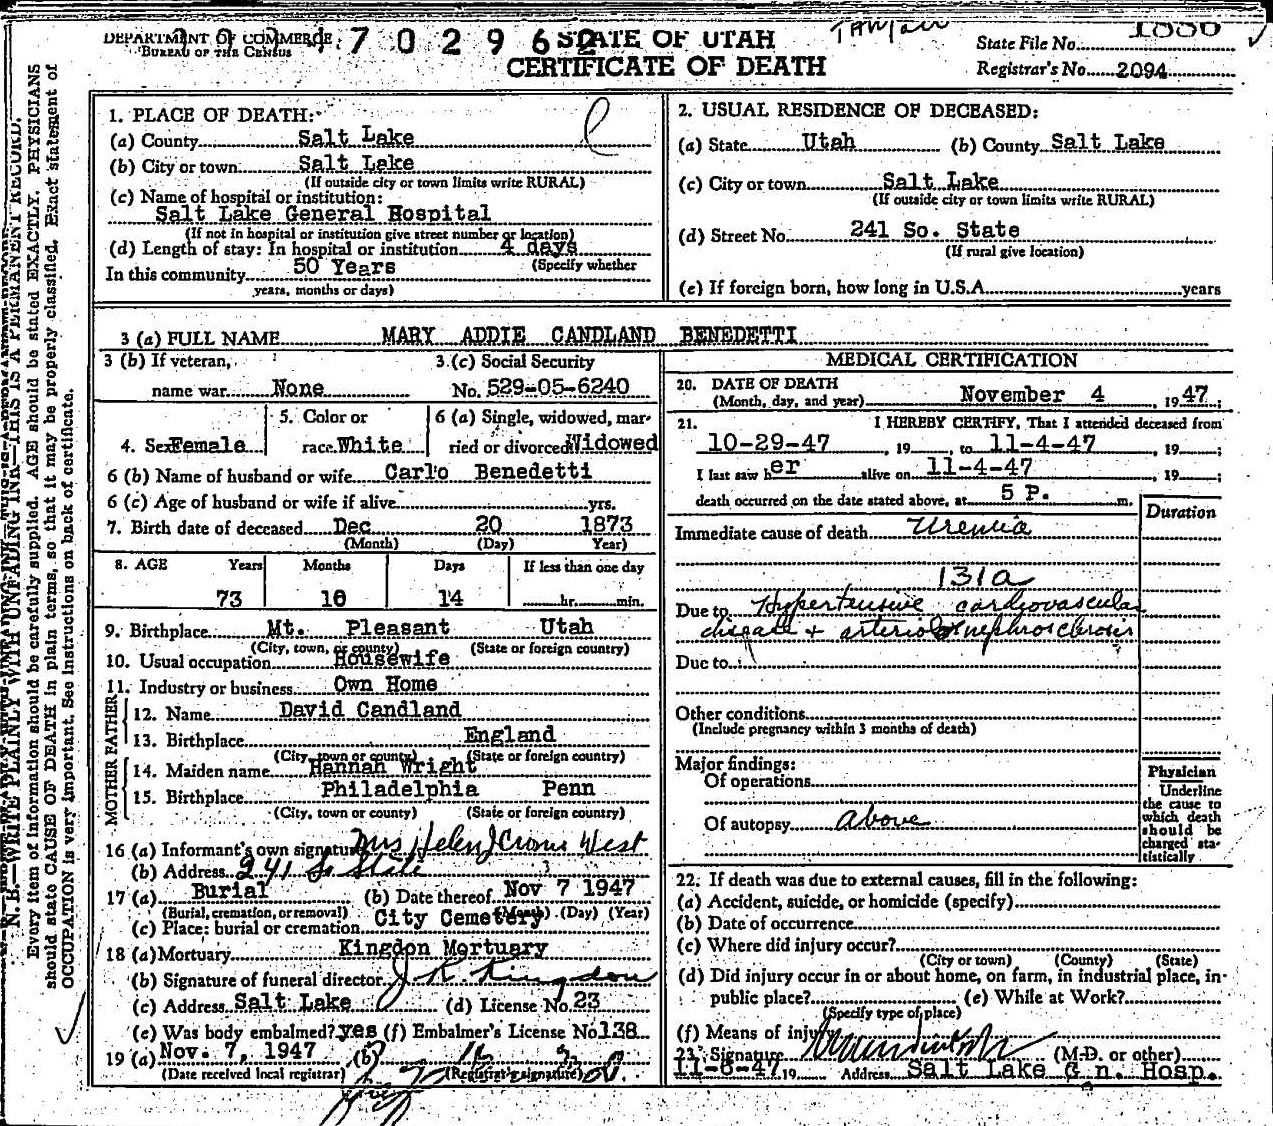 DEPARTMENT OF COMMERCE
BUREAU OF THE CENSUS
4 7 0 2 9 6 2
STATE OF UTAH
CERTIFICATE OF DEATH
State File No.
Registrar's No. 2094
N. B.—WRITE PLAINLY WITH UNFADING INK—THIS IS A PERMANENT RECORD.
Every item of information should be carefully supplied. AGE should be stated EXACTLY. PHYSICIANS
should state CAUSE OF DEATH in plain terms, so that it may be properly classified. Exact statement of
OCCUPATION is very important. See instructions on back of certificate.
1. PLACE OF DEATH:
(a) County Salt Lake
(b) City or town Salt Lake
(If outside city or town limits write RURAL)
(c) Name of hospital or institution:
Salt Lake General Hospital
(If not in hospital or institution give street number or location)
(d) Length of stay: In hospital or institution 4 days
(Specify whether
In this community 50 Years
years, months or days)
2. USUAL RESIDENCE OF DECEASED:
(a) State Utah (b) County Salt Lake
(c) City or town Salt Lake
(If outside city or town limits write RURAL)
(d) Street No. 241 So. State
(If rural give location)
(e) If foreign born, how long in U.S.A. years
3 (a) FULL NAME MARY ADDIE CANDLAND BENEDETTI
3 (b) If veteran,
name war None
3.(c) Social Security
No. 529-05-6240
4. Sex Female
5. Color or
race White
6 (a) Single, widowed, mar-
ried or divorced Widowed
6 (b) Name of husband or wife Carlo Benedetti
6 (c) Age of husband or wife if alive yrs.
7. Birth date of deceased Dec 20 1873
(Month) (Day) Year)
8. AGE Years Months Days If less than one day
73 10 14 hr. min.
9. Birthplace Mt. Pleasant Utah
(City, town, or county) (State or foreign country)
10. Usual occupation Housewife
11. Industry or business Own Home
FATHER
12. Name David Candland
13. Birthplace England
(City, town or county) (State or foreign country)
MOTHER
14. Maiden name Hannah Wright
15. Birthplace Philadelphia Penn
(City, town or county) (State or foreign country)
16 (a) Informant's own signature Mrs Helen J Crons West
(b) Address 241 So State
17 (a) Burial (b) Date thereof Nov 7 1947
(Burial, cremation, or removal) (Month) (Day) (Year)
(c) Place: burial or cremation City Cemetery
18 (a) Mortuary Kingdon Mortuary
(b) Signature of funeral director J R Kingdon
(c) Address Salt Lake (d) License No. 23
(e) Was body embalmed? yes (f) Embalmer's License No 138
19 (a) Nov. 7, 1947 (b)
(Date received local registrar) (Registrar's signature)
MEDICAL CERTIFICATION
20. DATE OF DEATH
(Month, day, and year) November 4, 1947;
21. I HEREBY CERTIFY, That I attended deceased from
10-29-47, 19, to 11-4-47, 19;
I last saw her alive on 11-4-47, 19;
death occurred on the date stated above, at 5 P. m.
Duration
Immediate cause of death Uremia
131a
Due to Hypertensive cardiovascular
disease & arteriolonephrosclerosis
Due to
Other conditions
(Include pregnancy within 3 months of death)
Major findings:
Of operations
Of autopsy above
Physician
Underline
the cause to
which death
should be
charged sta-
tistically
22. If death was due to external causes, fill in the following:
(a) Accident, suicide, or homicide (specify)
(b) Date of occurrence
(c) Where did injury occur?
(City or town) (County) (State)
(d) Did injury occur in or about home, on farm, in industrial place, in
public place? (e) While at Work?
(Specify type of place)
(f) Means of injury
23. Signature (M.D. or other)
11-6-47 19 Address Salt Lake G n. Hosp.